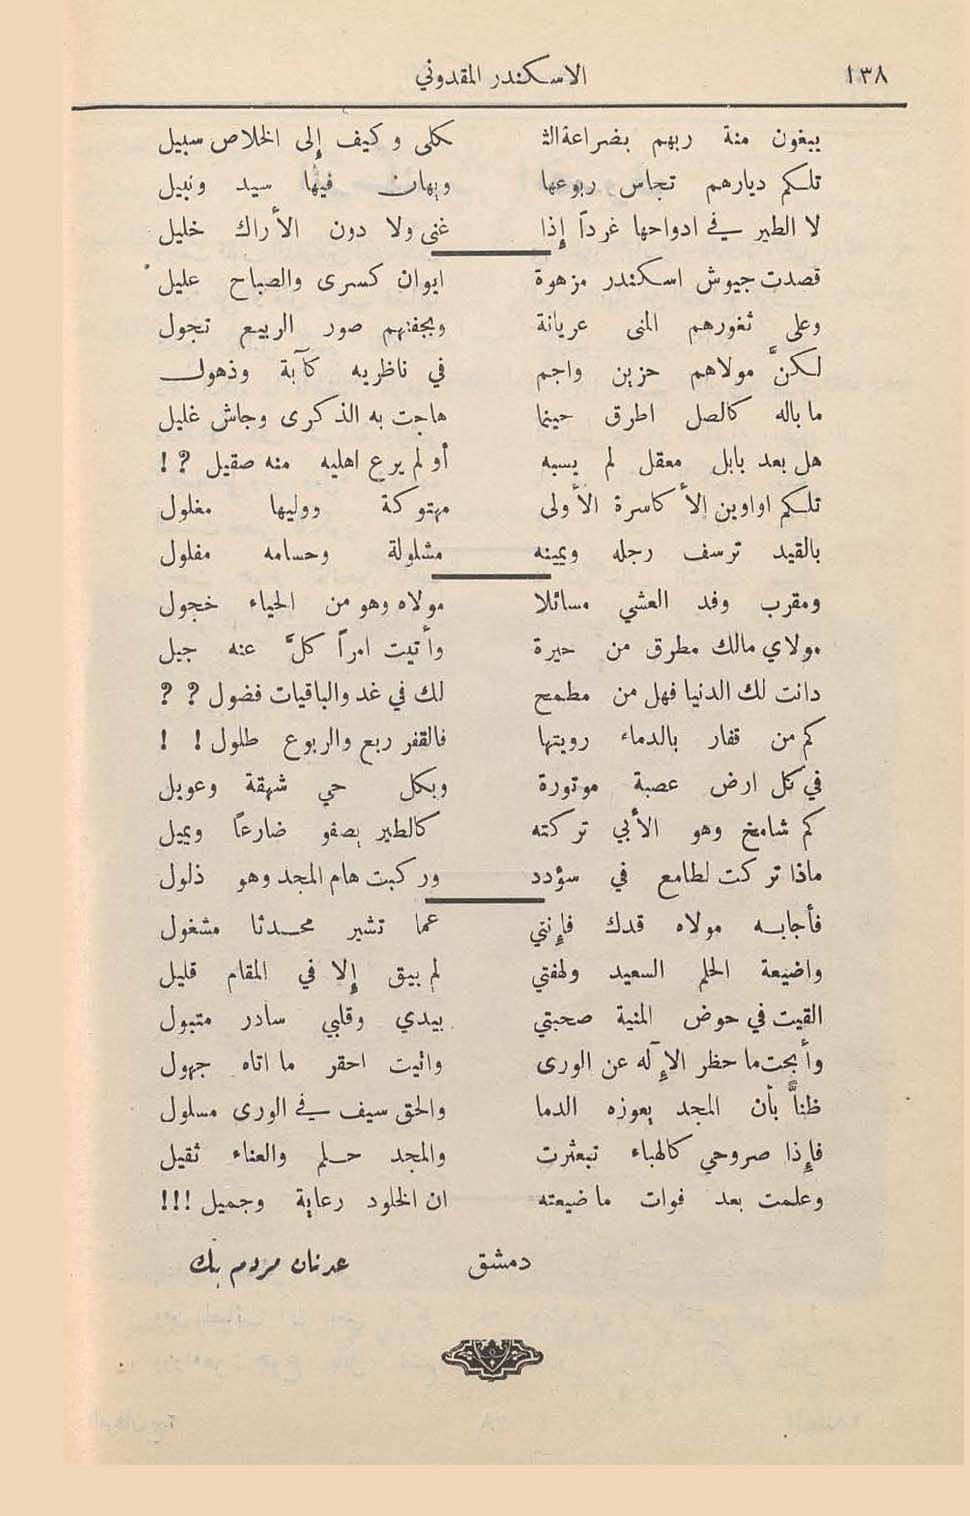 ١٣٨ الاسكندر المقدوني
يبغون منة ربهم بضراعةالث ـكلى وكيف إلى الخلاص سبيل
تلكم ديارهم تجاس ربوعها ويهان فيها سيد ونبيل
لا الطير في ادواحها غرداً إذا غنى ولا دون الأراك خليل
قصدت جيوش اسكندر مزهوة ايوان كسرى والصباح عليل
وعلى ثغورهم المنى عريانة وبجفنهم صور الربيع تجول
لكنَّ مولاهم حزين واجم في ناظريه كآبة وذهول
ما باله كالصل اطرق حينما هاجت به الذكرى وجاش غليل
هل بعد بابل معقل لم يسبه أو لم يرع اهليه منه صقيل ؟ !
تلكم اواوين الأكاسرة الأولى مهتوكة ووليها مغلول
بالقيد ترسف رجله ويمينه مشلولة وحسامه مفلول
ومقرب وفد العشي مسائلا مولاه وهو من الحياء خجول
مولاي مالك مطرق من حيرة وأتيت امراً كلَّ عنه جيل
دانت لك الدنيا فهل من مطمح لك في غد والباقيات فضول ؟ ؟
كم من قفار بالدماء رويتها فالقفر ربع والربوع طلول ! !
في كل ارض عصبة موتورة وبكل حي شهقة وعويل
كم شامخ وهو الأبي تركته كالطير يصفو ضارعاً ويميل
ماذا تركت لطامع في سؤدد وركبت هام المجد وهو ذلول
فأجابه مولاه قدك فإنني عما تشير محدثا مشغول
واضيعة الحلم السعيد ولهفتي لم يبق إلا في المقام قليل
القيت في حوض المنية صحبتي بيدي وقلبي سادر متبول
وأبحت ما حظر الإآله عن الورى واتيت احقر ما اتاه جهول
ظناً بأن المجد يعوزه الدما والحق سيف في الورى مسلول
فإذا صروحي كالهباء تبعثرت والمجد حلم والعناء ثقيل
وعلمت بعد فوات ما ضيعته ان الخلود رعاية وجميل !!!
دمشق عدنان مردم بك